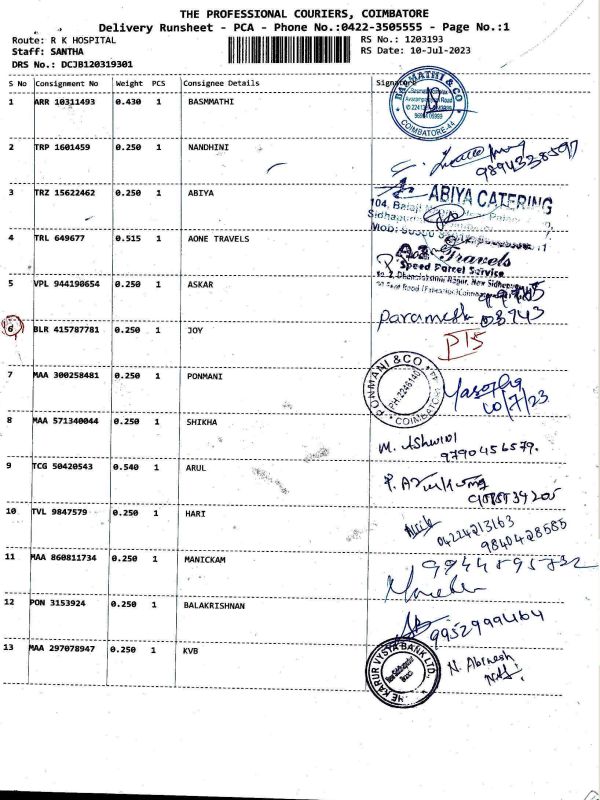 THE PROFESSIONAL COURIERS, COIMBATORE
Delivery Runsheet - PCA - Phone No.:0422-3505555 - Page No.:1
Route: R K HOSPITAL RS No.: 1203193
Staff: SANTHA RS Date: 10-Jul-2023
DRS No.: DCJB120319301
S No Consignment No Weight PCS Consignee Details Signature
1 ARR 10311493 0.430 1 BASMMATHI
BASMATHI & CO
COIMBATORE-44
2 TRP 1601459 0.250 1 NANDHINI
9894338597
3 TRZ 15622462 0.250 1 ABIYA
ABIYA CATERING
104, Balaji
Mob:
4 TRL 649677 0.515 1 AONE TRAVELS
Travels
Speed Parcel Service
5 VPL 944190654 0.250 1 ASKAR
6 BLR 415787781 0.250 1 JOY
P15
7 MAA 300258481 0.250 1 PONMANI
PONMANI & CO
COIMBATORE
10/7/23
8 MAA 571340044 0.250 1 SHIKHA
M. Ashwini
9790456579.
9 TCG 50420543 0.540 1 ARUL
10 TVL 9847579 0.250 1 HARI
04224213163
9840428585
11 MAA 860811734 0.250 1 MANICKAM
12 PON 3153924 0.250 1 BALAKRISHNAN
9952999464
13 MAA 297078947 0.250 1 KVB
THE KARUR VYSYA BANK LTD.
N. Abinesh